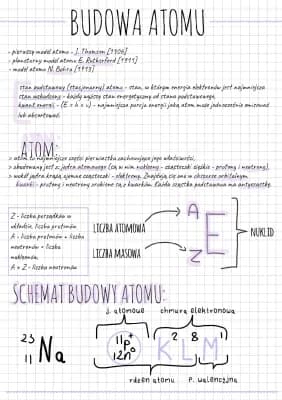 BUDOWA ATOMU
- pierwszy model atomu - J. Thomson [1904]
- planetarny model atomu E. Rutherford [1911]
- model atomu N. Bohra [1913]
stan podstawowy (stacjonarny) atomu - stan, w którym energia elektronów jest najmniejsza
stan wzbudzony - każdy wyższy stan energetyczny od stanu podstawowego
kwant energii - (E = h × ν) - najmniejsza porcja energii jaką atom może jednocześnie emitować
lub absorbować.
ATOM:
> atom to najmniejsza część pierwiastka zachowująca jego właściwości,
> zbudowany jest z: jądra atomowego (są w nim nukleony - cząsteczki ciężkie - protony i neutrony),
> wokół jądra krążą ujemne cząsteczki - elektrony. Znajdują się one w obszarze orbitalnym
kwarki - protony i neutrony zrobione są z kwarków. Każda cząstka podstawowa ma antycząstkę.
Z - liczba porządkowa w
układzie, liczba protonów
A - liczba protonów + liczba
neutronów = liczba
nukleonów,
A - Z - liczba neutronów
LICZBA ATOMOWA
LICZBA MASOWA
A
Z
E
NUKLID
SCHEMAT BUDOWY ATOMU:
j. atomowe
chmura elektronowa
23
11
Na
11p+
12n°
K2 L8 M1
rdzeń atomu
p. walencyjna